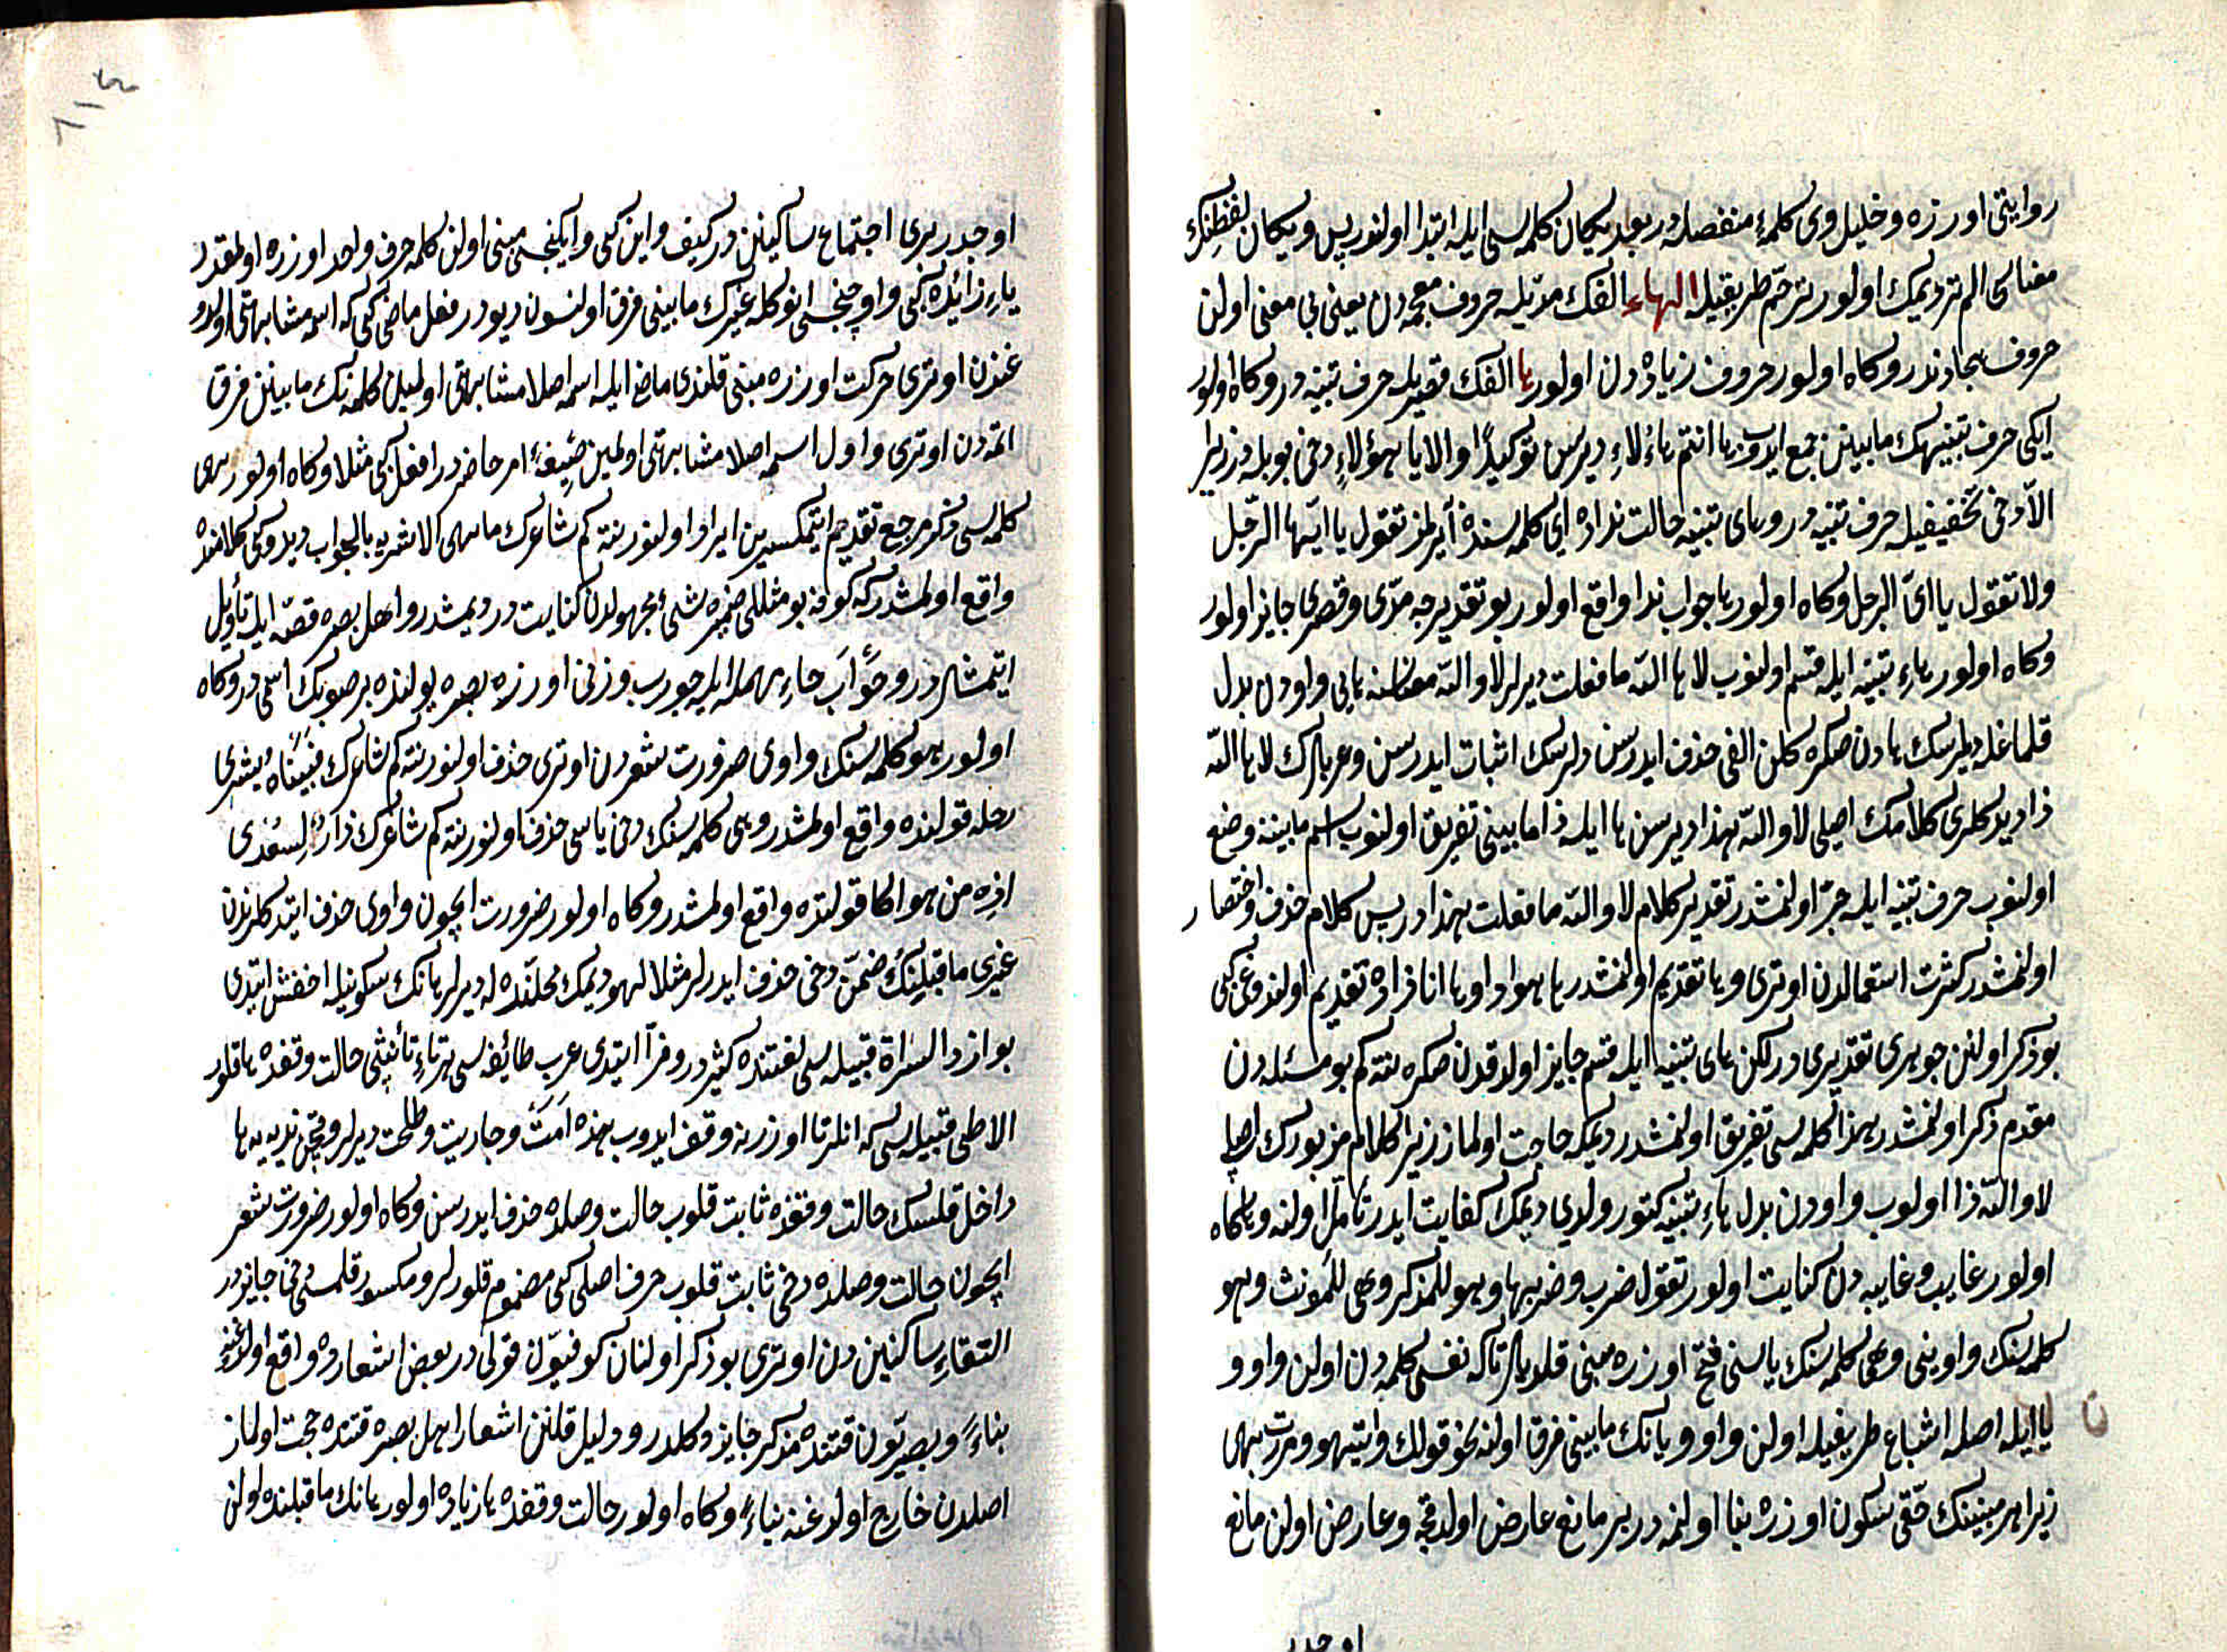 روايتی اوزره و خليل وی كلمهٔ منفصله در بعده يكان كلمه سی ايله ابتدا اولنور پس ويكان لفظنك
معناسی الم تر ديمك اولور ترحّم طريقيله الهاء الفك مدّيله حروف معجمه دن يعنی بی معنی اولن
حروف هجادندر و كاه اولور حروف زياده دن اولور ها الفك قصريله حرف تنبيه در و كاه اولور
ايكی حرف تنبيهك مابينن جمع ايدوب ها انتم هاؤلاء ديرسن توكيدًا والا يا هؤلاء دخی بويله در زيرا
الا دخی تخفيفيله حرف تنبيه در و های تنبيه حالت نداده ای كلمه سندن آيرلمز تقول يا ايّها الرّجل
ولا تقول يا ایّ الرجل و كاه اولور ها جواب ندا واقع اولور بو تقديرجه مدّی و قصری جايز اولور
و كاه اولور هاء تنبيه ايله قسم اولنوب لا ها اللّه ما فعلت ديرلر لا واللّه معناسنه هايی واودن بدل
قلماغله ديلرسك هادن صكره كلن الفی حذف ايدرسن ديلرسك اثبات ايدرسن و عربلرك لا ها اللّه
ذا ديدكلری كلامك اصلی لا واللّه هذا ديرسن ها ايله ذا مابينی تفريق اولنوب اسم مابيننه وضع
اولنوب حرف تنبيه ايله جرّ اولنمشدر تقدير كلام لا واللّه ما فعلت هذا در پس كلام حذف و اختصار
اولنمشدر كثرت استعمالدن اوتری و ها تقديم اولنمشدر ها هو ذا و ها انا ذا ده تقديم اولندوغی كبی
بو ذكر اولنن جوهری تقديری در لكن های تنبيه ايله قسم جايز اولدقدن صكره نته كم بو مسئله دن
مقدم ذكر اولنمشدر هذا كلمه سی تفريق اولنمشدر ديمكه حاجت اولماز زيرا كلام مزبورك اصلی
لا واللّه ذا اولوب واودن بدل هاء تنبيه كتورولدی ديمك كفايت ايدر تأمّل اولنه و ها كاه
اولور غايب و غايبه دن كنايت اولور تقول ضربه و ضربها و هو للمذكر و هی للمؤنث و هو
كلمه سنك واوينی و هی كلمه سنك ياسنی فتح اوزره مبنی قلديلر تاكه نفس كلمه دن اولن واو و
يا ايله اصله اشباع طريقيله اولن واو و يانك مابينی فرق اولنه نحو قولك رأيتهو و مررت بهی
زيرا هر مبنينك حقی سكون اوزره بنا اولنمه در بر مانع عارض اولدقجه و عارض اولن مانع
اوجدر
اوجدر بری اجتماع ساكنين در كيف و اين كبی و ايكنجسی مبنی اولن كلمه حرف واحد اوزره اولمقدر
ياء زائده كبی و اوچنجسی انوكله غيرك مابينی فرق اولنسون ديودر فعل ماضی كبی كه اسمه مشابهتی اولدو
غندن اوتری حركت اوزره مبنی قلندی ماضی ايله اسمه اصلا مشابهتی اولمين كلمه نك مابينن فرق
اتمه دن اوتری و اول اسمه اصلا مشابهتی اولمين صيغهٔ امر حاضردر افعل كبی مثلا و كاه اولور هی
كلمه سی ذكر مرجع تقديم ايتمكسزين ايراد اولنور نته كم شاعرك ماهی الا شربه بالجواب ديدوكی كلامنده
واقع اولمشدر كه كوفه بو مثللی ضميره شیء مجهولدن كنايت در ديمشلر و اهل بصره قصّه ايله تأويل
ايتمشلر در و حوأب حاء مهمله ايله جورب وزنی اوزره بصره يولنده بر صويك اسمی در و كاه
اولور هو كلمه سنك واوی ضرورت شعردن اوتری حذف اولنور نته كم شاعرك فبيناه يشری
رحله قولنده واقع اولمشدر و هی كلمه سنك دخی ياسی حذف اولنور نته كم شاعرك دار لسعدی
اذه من هواكا قولنده واقع اولمشدر و كاه اولور ضرورت ايچون واوی حذف ايتدكلرندن
غيری ماقبلينك ضمّن دخی حذف ايدرلر مثلا لهو ديمك محلّنده له ديرلر هانك سكونيله اخفش ايتدی
بو ازد السراة قبيله سی لغتنده كثيردر و فرّا ايتدی عرب طائفه سی هر تاء تأنيثی حالت وقفده ها قلور
الا طی قبيله سی كه انلر تا اوزرنه وقف ايدوب هذه امت و جاريت و طلحت ديرلر و قچن ندبه يه ها
داخل قلسك حالت وقفده ثابت قلوب حالت وصلده حذف ايدرسن و كاه اولور ضرورت شعر
ايچون حالت وصلده دخی ثابت قلوب حرف اصلی كبی مضموم قلورلر و مكسور قلمسی دخی جايزدر
التقاء ساكنين دن اوتری بو ذكر اولنان كوفيّون قولی در بعض اشعارده واقع اولدوغنه
بناءً و بصريّون قتنده مذكر جايز دكلدر و دليل قلنن اشعار اهل بصره قتنده حجت اولماز
اصلدن خارج اولدوغنه بناءً و كاه اولور حالت وقفده ها زياده اولور هانك ماقبلنده اولن